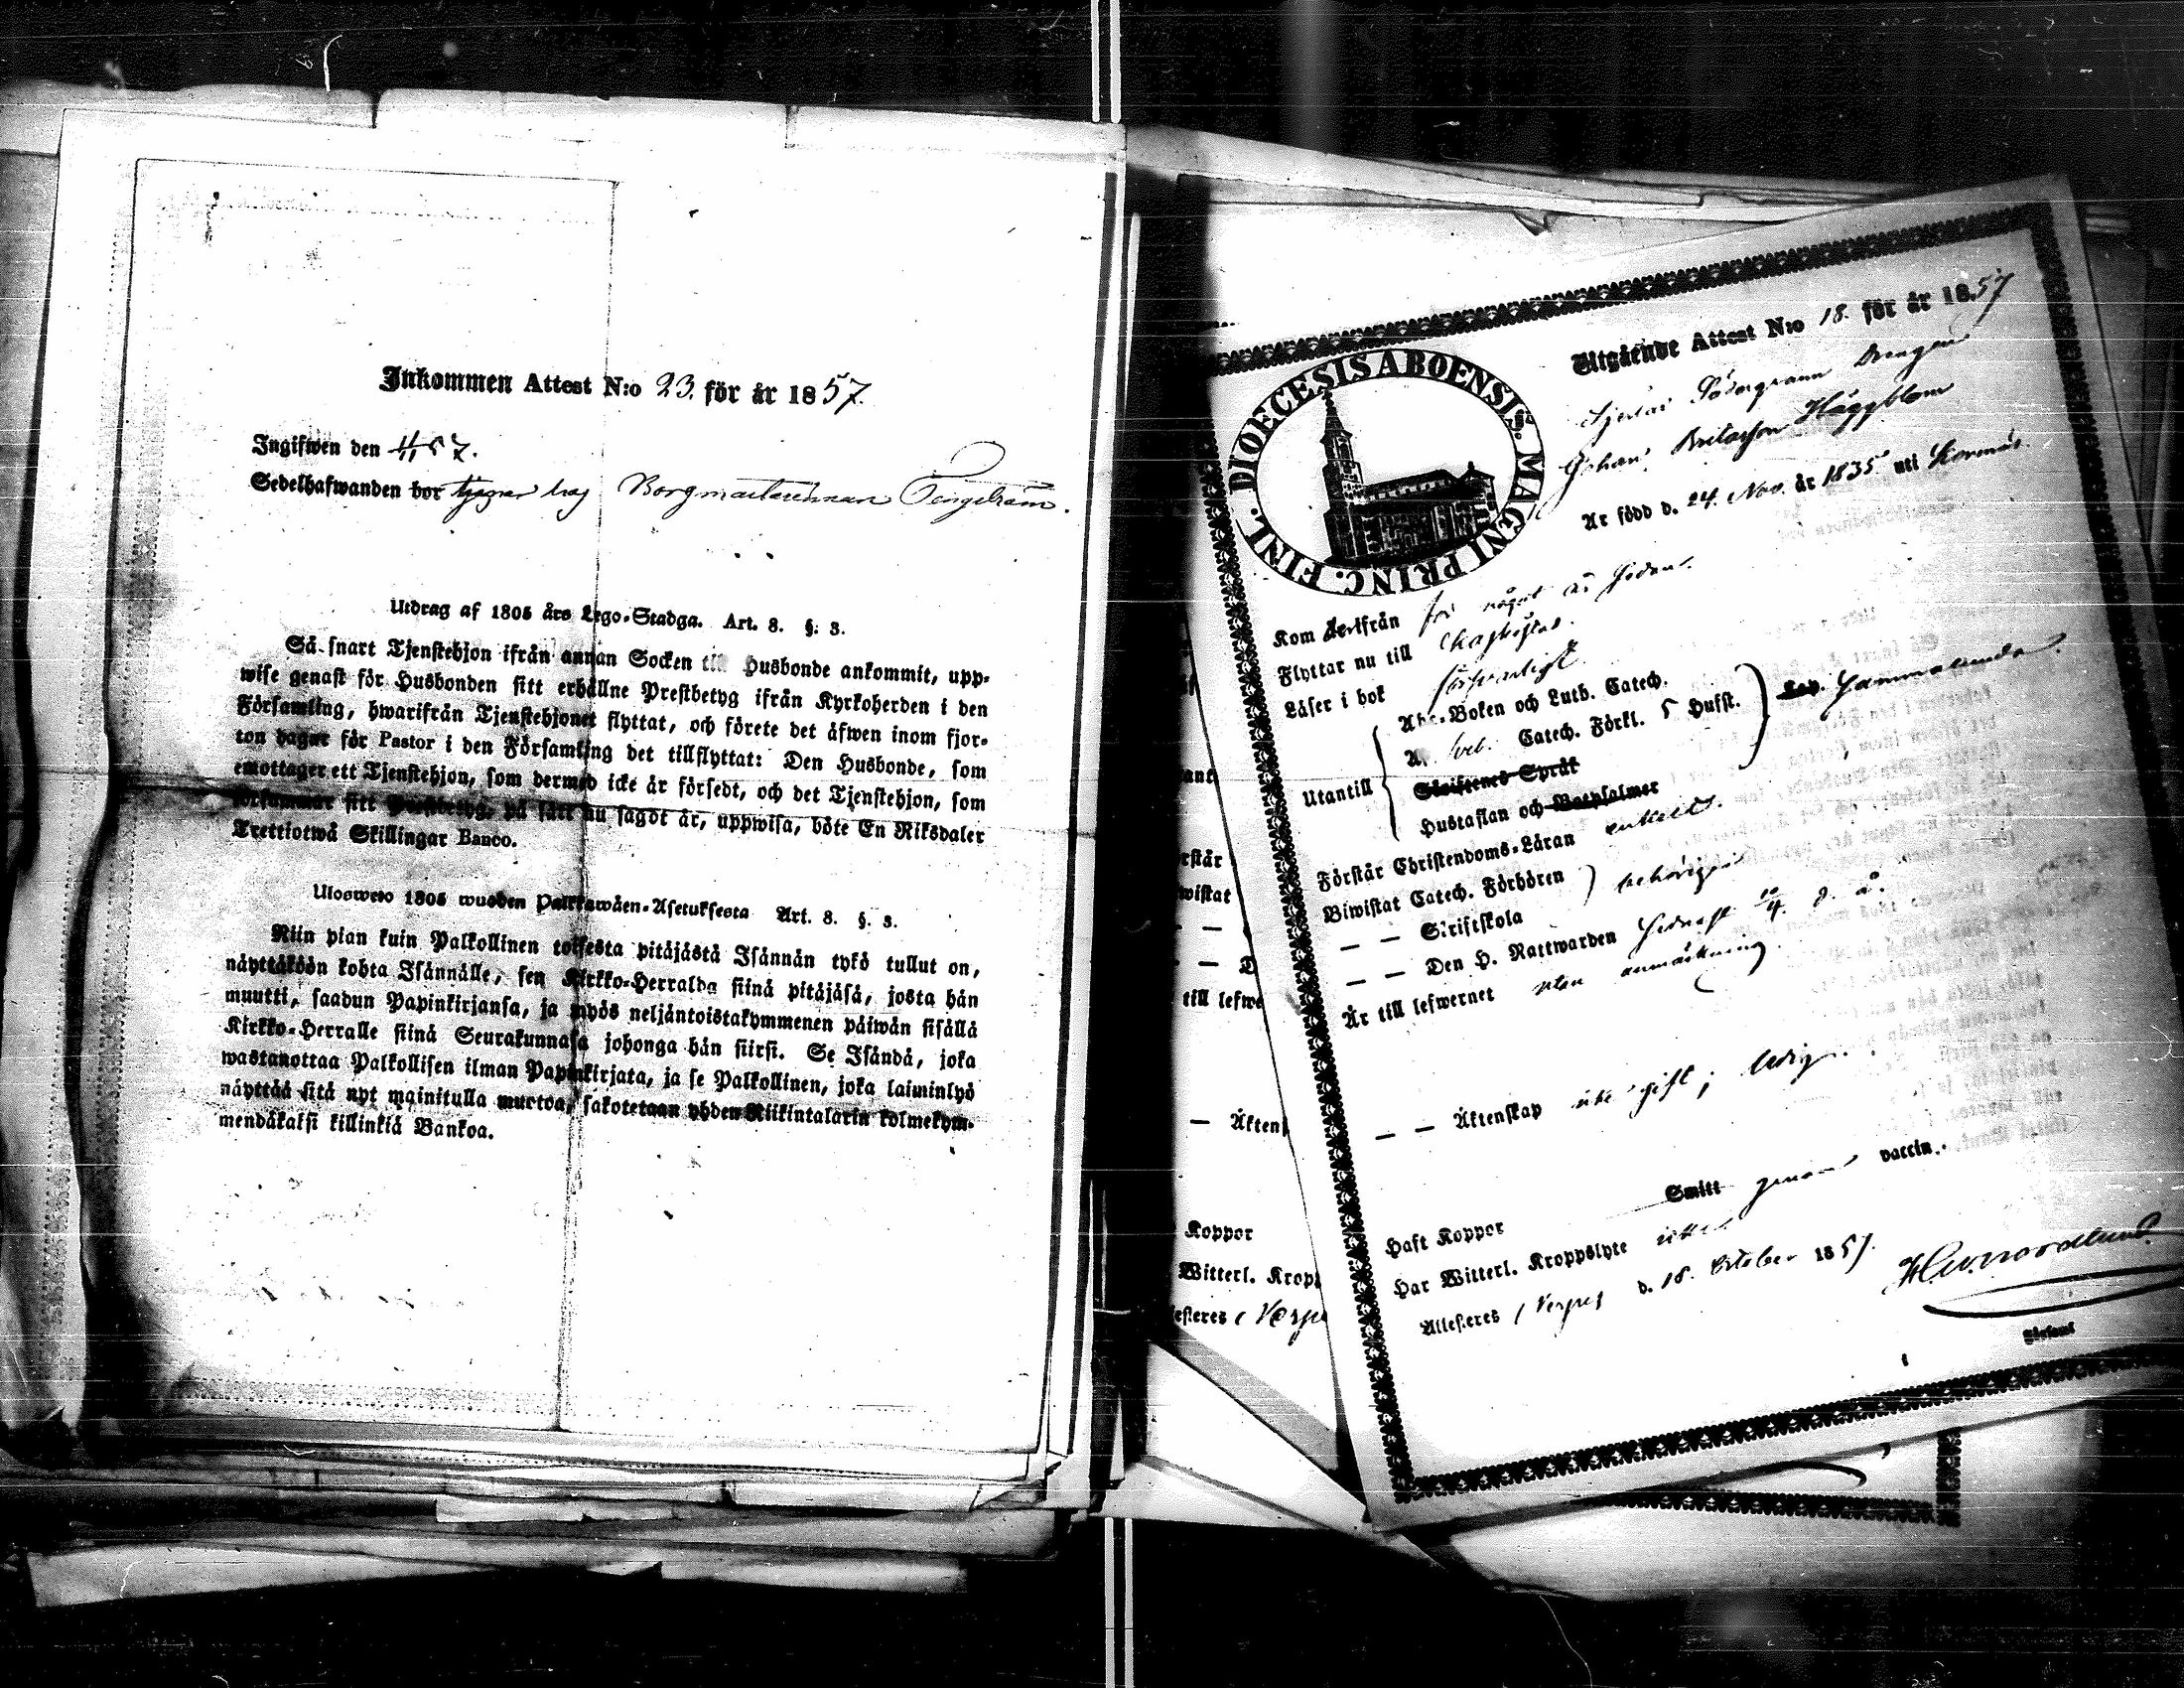 Inkommen Attest N:o 23. för år 1857.
Ingifwen den 4/11 57.
Sedelhafwanden bor tjenar hos Borgmästarinnan Tengström.
Utdrag af 1805 års Lego-Stadga. Art. 8. §. 3.
Så snart Tjenstehjon ifrån annan Socken till Husbonde ankommit, upp-
wise genast för Husbonden sitt erhållne Prestbetyg ifrån Kyrkoherden i den
Församling, hwarifrån Tjenstehjonet flyttat, och förete det äfwen inom fjor-
ton dagar för Pastor i den Församling det tillflyttat: Den Husbonde, som
emottager ett Tjenstehjon, som dermed icke är försedt, och det Tjenstehjon, som
försummar sitt Prestbetyg, på sätt nu sagdt är, uppwisa, böte En Riksdaler
Trettiotwå Skillingar Banco.
Ulosweto 1805 wuoden Palkkawäen-Asetuksesta Art. 8. §. 3.
Niin pian kuin Palkollinen toisesta pitäjästä Isännän tykö tullut on,
näyttäköön kohta Isännälle, sen Kirkko-Herralda siinä pitäjäsä, josta hän
muutti, saadun Papinkirjansa, ja myös neljäntoistakymmenen päiwän sisällä
Kirkko-Herralle siinä Seurakunnasa johonga hän siirsi. Se Isändä, joka
wastanottaa Palkollisen ilman Papinkirjata, ja se Palkollinen, joka laiminlyö
näyttää sitä nyt mainitulla muotoa, sakotetaan yhden Riikintalarin kolmekym-
mendäkaksi killinkiä Bankoa.
Koppor
Witterl. Kropp
DIOECESIS ABOENSIS. MAGNI PRINC. FINL.
Utgående Attest N:o 18. för år 1857
Södergrann Drengen
Johan Britasson Häggblom
Är född d. 24. Nov. år 1835 uti Kornäs.
Kom derifrån för något år sedan.
Flyttar nu till Chaskislot.
Läser i bok försvarligt.
Utantill
Abc-Boken och Luth. Catech.
Catech. Förkl. 5 Husst.
Skriftenes Språk
Hustaflan och Botpsalmer
Förstår Christendoms-Läran enkelt.
Biwistat Catech. Förhören behörigen
— — Skriftskola
— — Den H. Nattwarden sednast d. å.
Är till lefwernet utan anmärkning
— — Äktenskap icke gift; ledig.
Haft Koppor Smitt genom vaccin.
Har Witterl. Kroppslyte icke
Attesteras i Nerpes d. 18. October 1857.